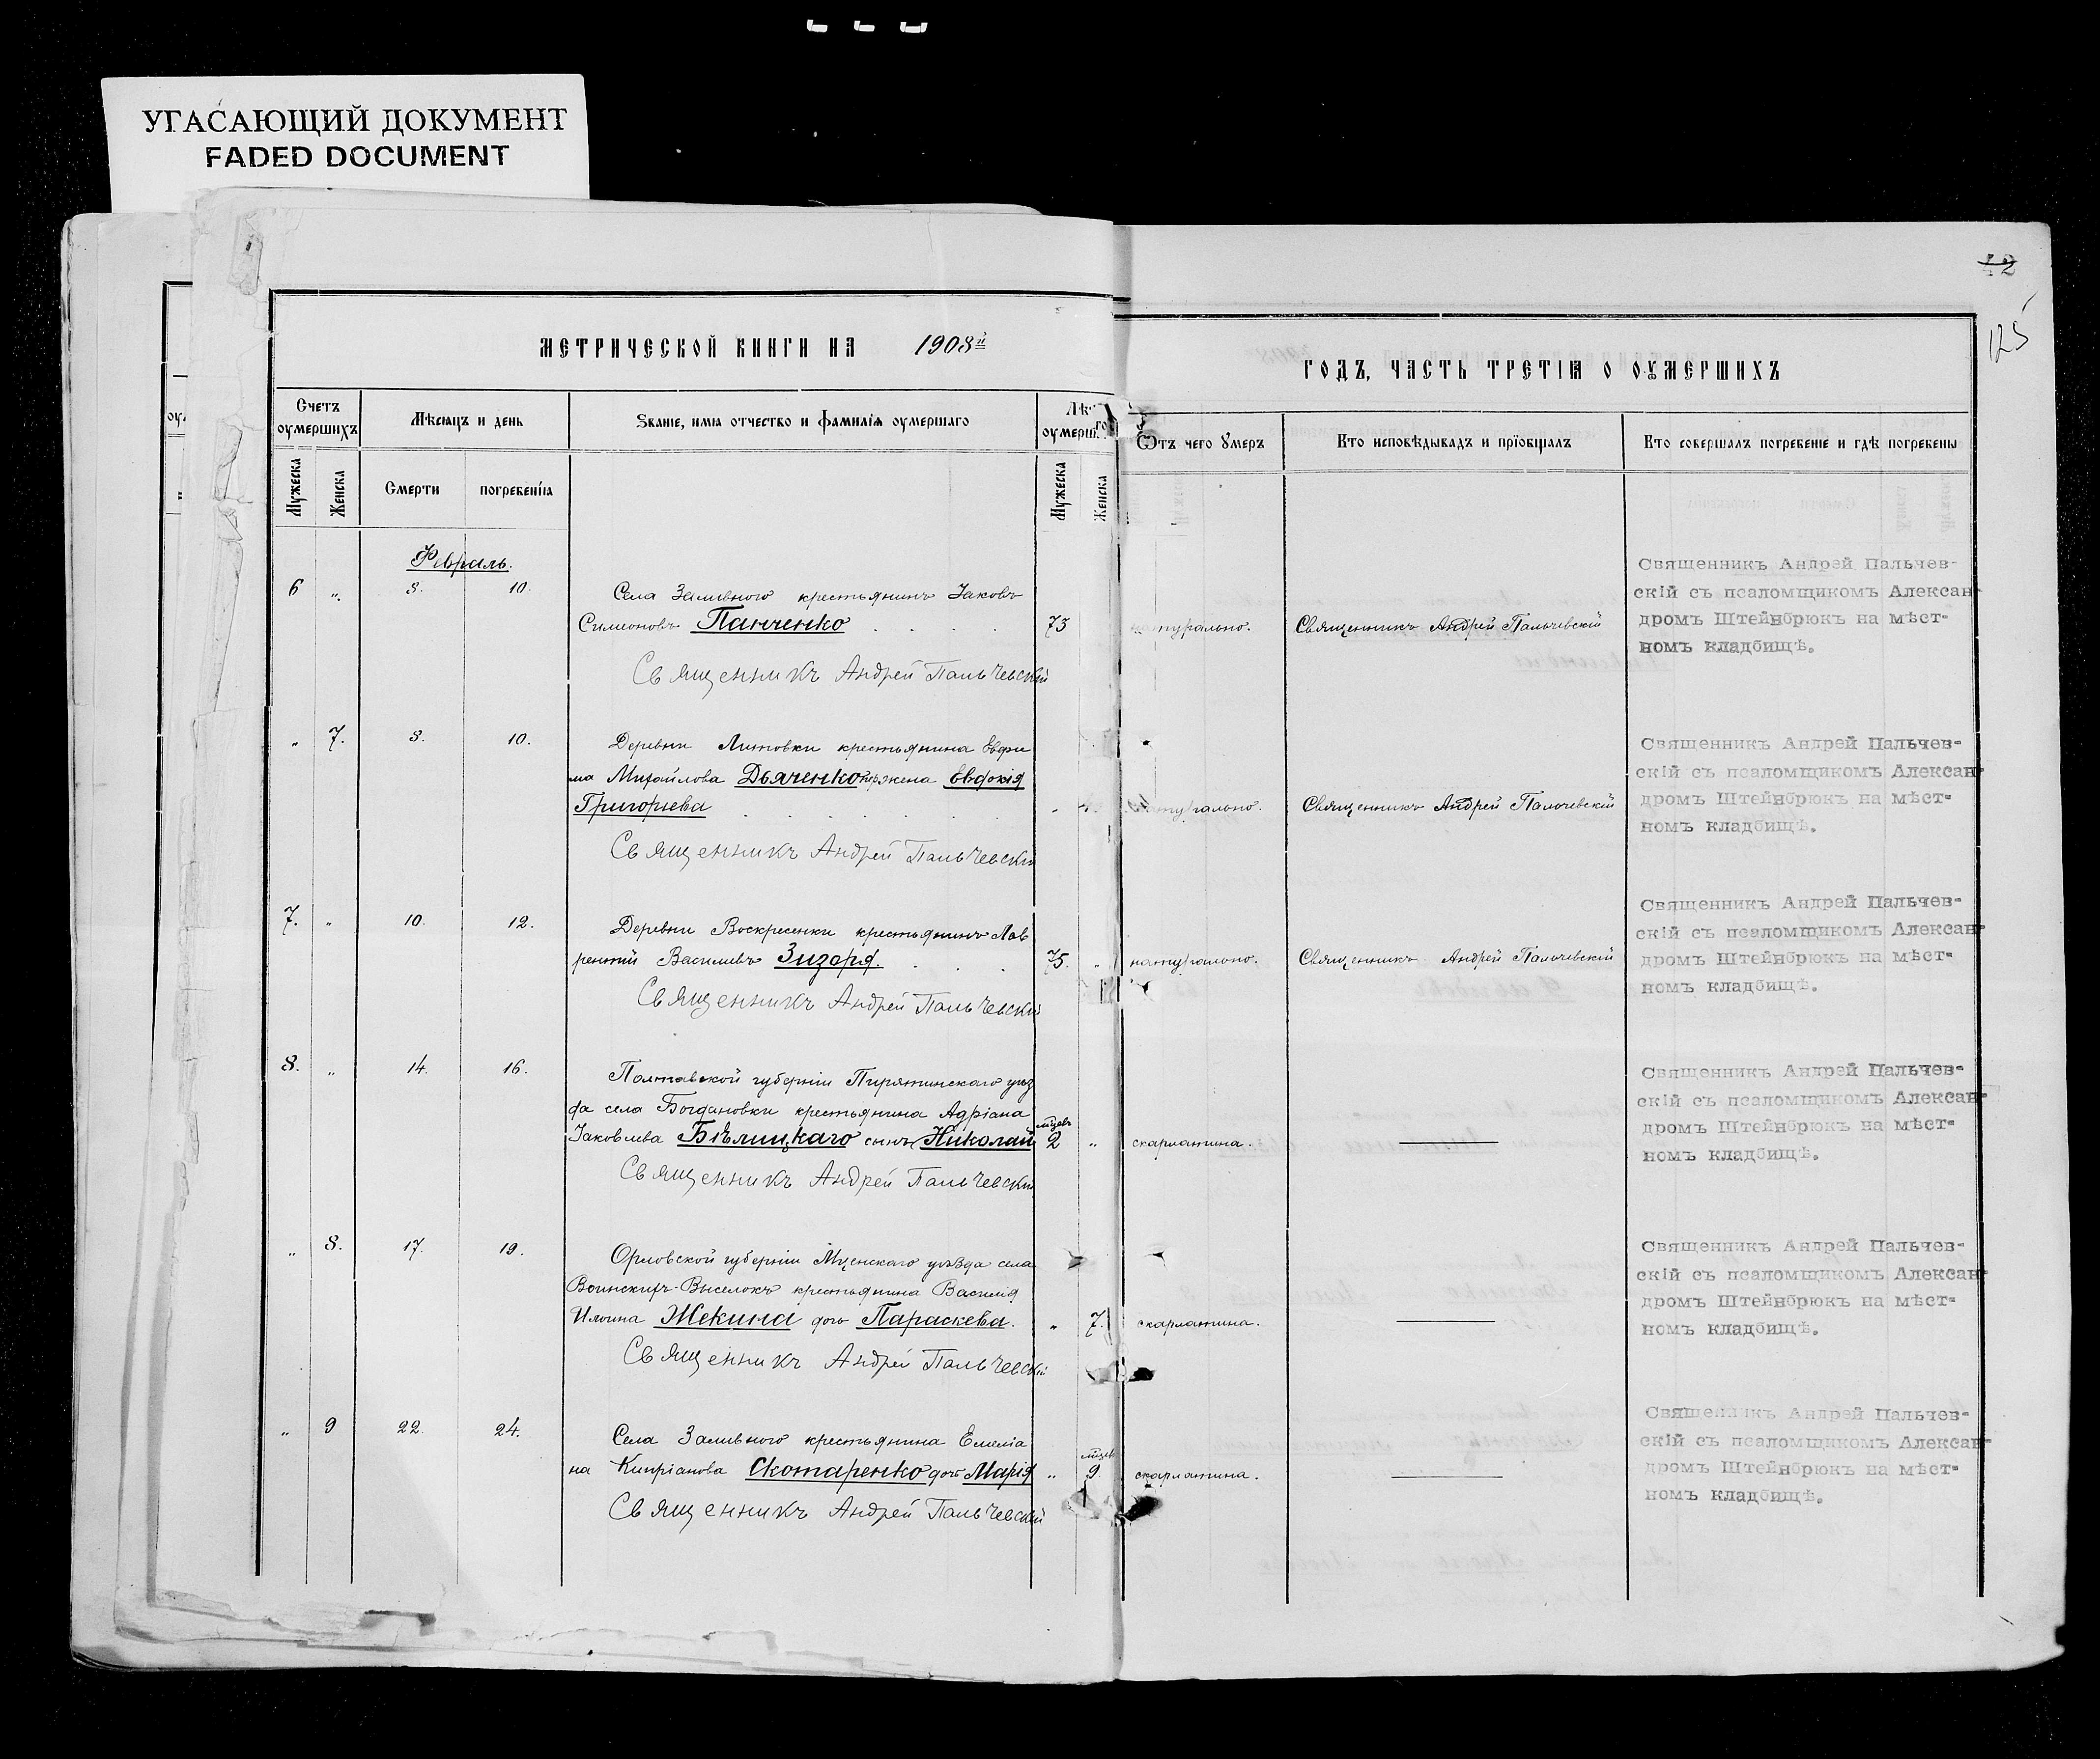 УГАСАЮЩИЙ ДОКУМЕНТ
FADED DOCUMENT
42
125
МЕТРИЧЕСКОЙ КНИГИ НА 1908й
ГОДЪ, ЧАСТЬ ТРЕТІѦ О ОУМЕРШИХЪ
Счетъ оумершихъ
Мѣсяцъ и день
Ѕваніе, имѧ отчество и фамиліѧ оумершаго
Лѣ
оумерш го
Ѿтъ чего Умеръ
Кто исповѣдывалъ и прїобщалъ
Кто совершалъ погребеніе и гдѣ погребены
Мужеска
Женска
Смерти
погребеніѧ
Мужеска
Женска
Февраль.
6 „ 8. 10. Села Заливного крестьянинъ Іаковъ
Симеоновъ Панченко . . . . 73 турально. Священникъ Андрей Пальчевскій
Священникъ Андрей Пальчевскій
Священникъ Андрей Пальчев-
скій съ псаломщикомъ Алексан-
дромъ Штейнбрюкъ на мѣст-
номъ кладбищѣ.
„ 7. 8. 10. Деревни Литовки крестьянина Евфи
ма Михайлова Дьяченко жена Евдокія
Григорьева . . . . . . турально. Священникъ Андрей Пальчевскій
Священникъ Андрей Пальчевскій
Священникъ Андрей Пальчев-
скій съ псаломщикомъ Алексан-
дромъ Штейнбрюкъ на мѣст-
номъ кладбищѣ.
7. „ 10. 12. Деревни Воскресенки крестьянинъ Лав
рентій Василіевъ Зизаря. . . . 75. „ натурально. Священникъ Андрей Пальчевскій
Священникъ Андрей Пальчевскій
Священникъ Андрей Пальчев-
скій съ псаломщикомъ Алексан-
дромъ Штейнбрюкъ на мѣст-
номъ кладбищѣ.
8. „ 14. 16. Полтавской губерніи Пирятинскаго уѣз
да села Богдановки крестьянина Адріана
Іаковлева Бѣлицкаго сынъ Николай мѣсцев 2 „ скарлатина.
Священникъ Андрей Пальчевскій
Священникъ Андрей Пальчев-
скій съ псаломщикомъ Алексан-
дромъ Штейнбрюкъ на мѣст-
номъ кладбищѣ.
„ 8. 17. 19. Орловской губерніи Мценскаго уѣзда села
Воинскихъ-Выселокъ крестьянина Василія
Ильина Жекина дочь Параскева. „ 7. скарлатина.
Священникъ Андрей Пальчевскій
Священникъ Андрей Пальчев-
скій съ псаломщикомъ Алексан-
дромъ Штейнбрюкъ на мѣст-
номъ кладбищѣ.
„ 9 22. 24. Села Заливного крестьянина Емелiа
на Кипріанова Скотаренко дочь Марія „ 9 скарлатина.
Священникъ Андрей Пальчевскій
Священникъ Андрей Пальчев-
скій съ псаломщикомъ Алексан-
дромъ Штейнбрюкъ на мѣст-
номъ кладбищѣ.